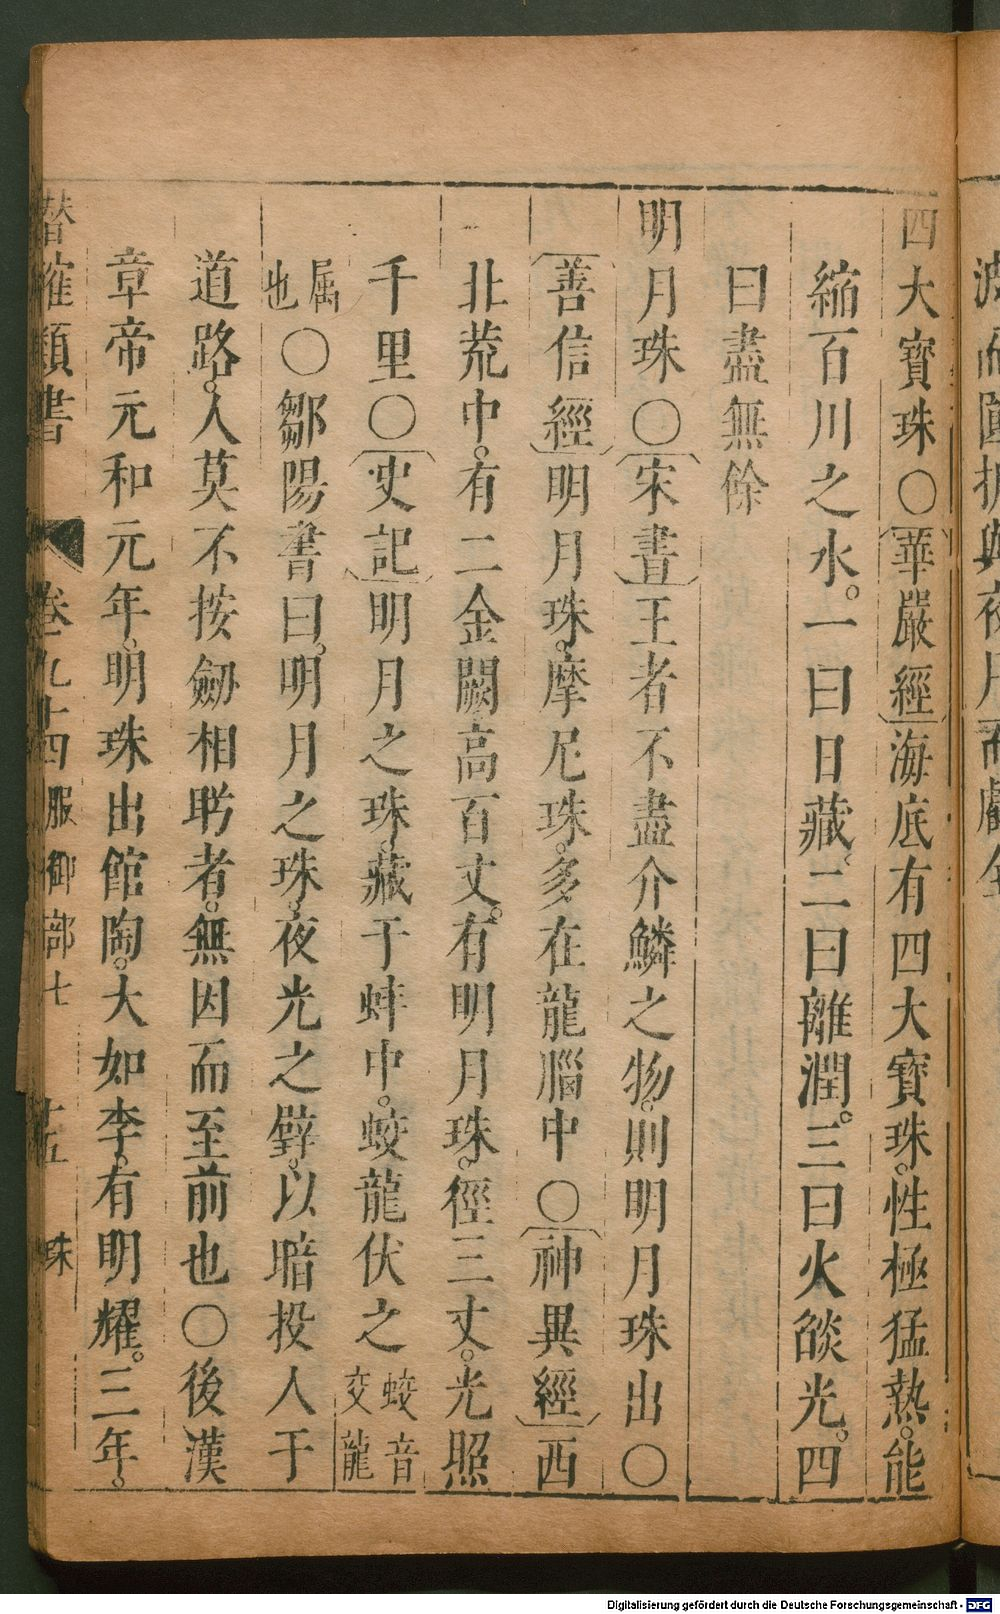 四大寶珠○華嚴經海底有四大寶珠。性極猛熱。能
縮百川之水。一曰日藏。二曰離潤。三曰火燄光。四
曰盡無餘
明月珠○宋書王者不盡介鱗之物。則明月珠出○
善信經明月珠。摩尼珠。多在龍腦中○神異經西
北荒中。有二金闕高百丈。有明月珠。徑三丈。光照
千里○史記明月之珠。藏于蚌中。蛟龍伏之蛟音交龍
屬也○鄒陽書曰。明月之珠。夜光之璧。以暗投人于
道路。人莫不按劒相眄者。無因而至前也○後漢
章帝元和元年。明珠出館陶。大如李。有明耀。三年。
類書 卷九十四 服御部七 十五 珠
Digitalisierung gefördert durch die Deutsche Forschungsgemeinschaft - DFG